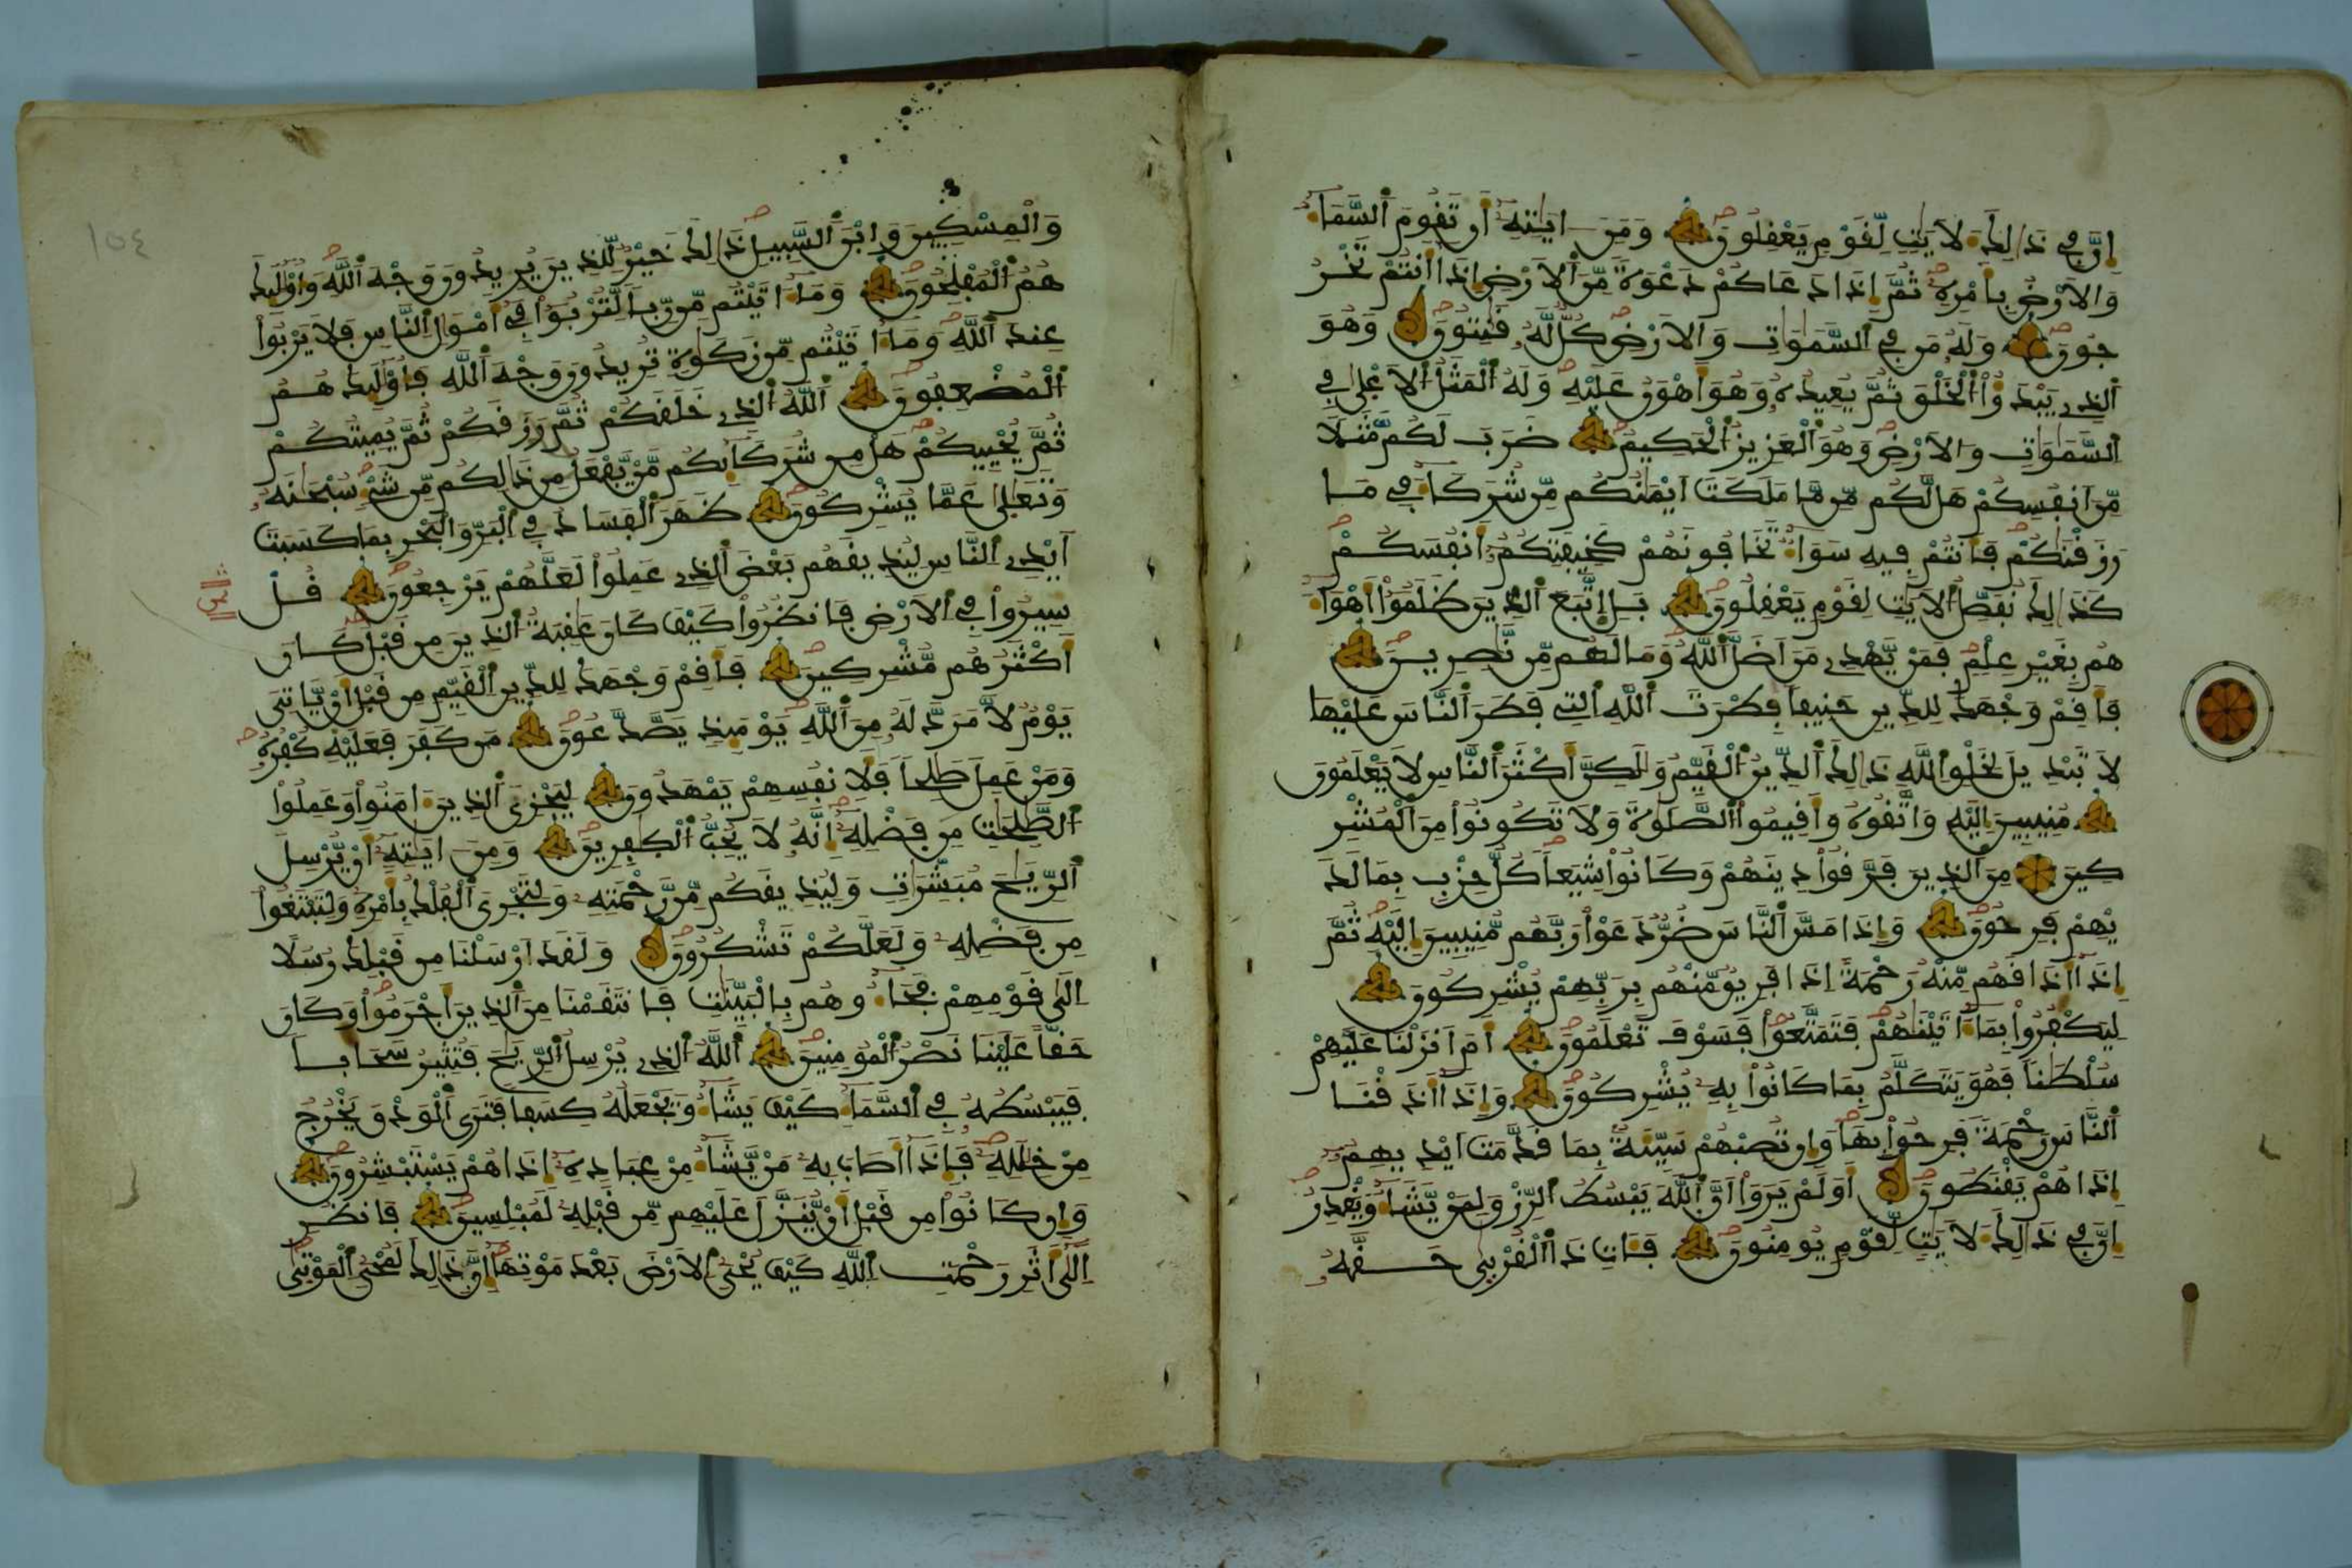 إن في ذلك لأيت لقوم يعقلون ومن ايته أن تقوم السماء
والأرض بأمره ثم إذا دعاكم دعوة من الأرض إذا أنتم تخر
جون وله من في السموات والأرض كل له قنتون وهو
الذي يبدؤا الخلق ثم يعيده وهو أهون عليه وله المثل الأعلى في
السموات والأرض وهو العزيز الحكيم ضرب لكم مثلا
من أنفسكم هل لكم من ما ملكت أيمنكم من شركاء في ما
رزقنكم فأنتم فيه سواء تخافونهم كخيفتكم أنفسكم
كذلك نفصل الأيت لقوم يعقلون بل اتبع الذين ظلموا أهواء
هم بغير علم فمن يهدي من أضل الله وما لهم من نصرين
فأقم وجهك للدين حنيفا فطرت الله التي فطر الناس عليها
لا تبديل لخلق الله ذلك الدين القيم ولكن أكثر الناس لا يعلمون
منيبين إليه واتقوه وأقيموا الصلوة ولا تكونوا من المشر
كين من الذين فرقوا دينهم وكانوا شيعا كل حزب بما لد
يهم فرحون وإذا مس الناس ضر دعوا ربهم منيبين إليه ثم
إذا أذاقهم منه رحمة إذا فريق منهم بربهم يشركون
ليكفروا بما اتينهم فتمتعوا فسوف تعلمون أم أنزلنا عليهم
سلطنا فهو يتكلم بما كانوا به يشركون وإذا أذقنا
الناس رحمة فرحوا بها وإن تصبهم سيئة بما قدمت أيديهم
إذا هم يقنطون أولم يروا أن الله يبسط الرزق لمن يشاء ويقدر
إن في ذلك لأيت لقوم يومنون فئات ذا القربى حقه
والمسكين وابن السبيل ذلك خير للذين يريدون وجه الله وأولئك
هم المفلحون وما اتيتم من ربا لتربوا في أمول الناس فلا يربوا
عند الله وما اتيتم من زكوة تريدون وجه الله فأولئك هم
المضعفون الله الذي خلقكم ثم رزقكم ثم يميتكم
ثم يحييكم هل من شركائكم من يفعل من ذلكم من شيء سبحنه
وتعلى عما يشركون ظهر الفساد في البر والبحر بما كسبت
أيدي الناس ليذيقهم بعض الذي عملوا لعلهم يرجعون قل
ثمن
سيروا في الأرض فانظروا كيف كان عقبة الذين من قبل كان
أكثرهم مشركين فأقم وجهك للدين القيم من قبل أن ياتي
يوم لا مرد له من الله يومئذ يصدعون من كفر فعليه كفره
ومن عمل صلحا فلأنفسهم يمهدون ليجزي الذين امنوا وعملوا
الصلحت من فضله إنه لا يحب الكفرين ومن ايته أن يرسل
الرياح مبشرات وليذيقكم من رحمته ولتجري الفلك بأمره ولتبتغوا
من فضله ولعلكم تشكرون ولقد أرسلنا من قبلك رسلا
إلى قومهم فجاءوهم بالبينت فانتقمنا من الذين أجرموا وكان
حقا علينا نصر المومنين الله الذي يرسل الريح فتثير سحابا
فيبسطه في السماء كيف يشاء ويجعله كسفا فترى الودق يخرج
من خلله فإذا أصاب به من يشاء من عباده إذا هم يستبشرون
وإن كانوا من قبل أن ينزل عليهم من قبله لمبلسين فانظر
إلى أثر رحمت الله كيف يحي الأرض بعد موتها إن ذلك لمحي الموتى
١٥٤